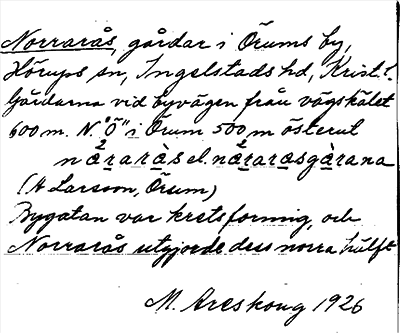 Norrarås, gårdar i Örums by,
Hörups sn, Ingelstads hd, Krist. l.
Gårdarna vid byvägen från vägskälet
600 m. N. "Ö" i Örum 500 m österut
nærarås el. nærarasgårana
(A Larsson, Örum)
Bygatan var kretsformig, och
Norrarås utgjorde dess norra hälft
M. Areskoug 1926